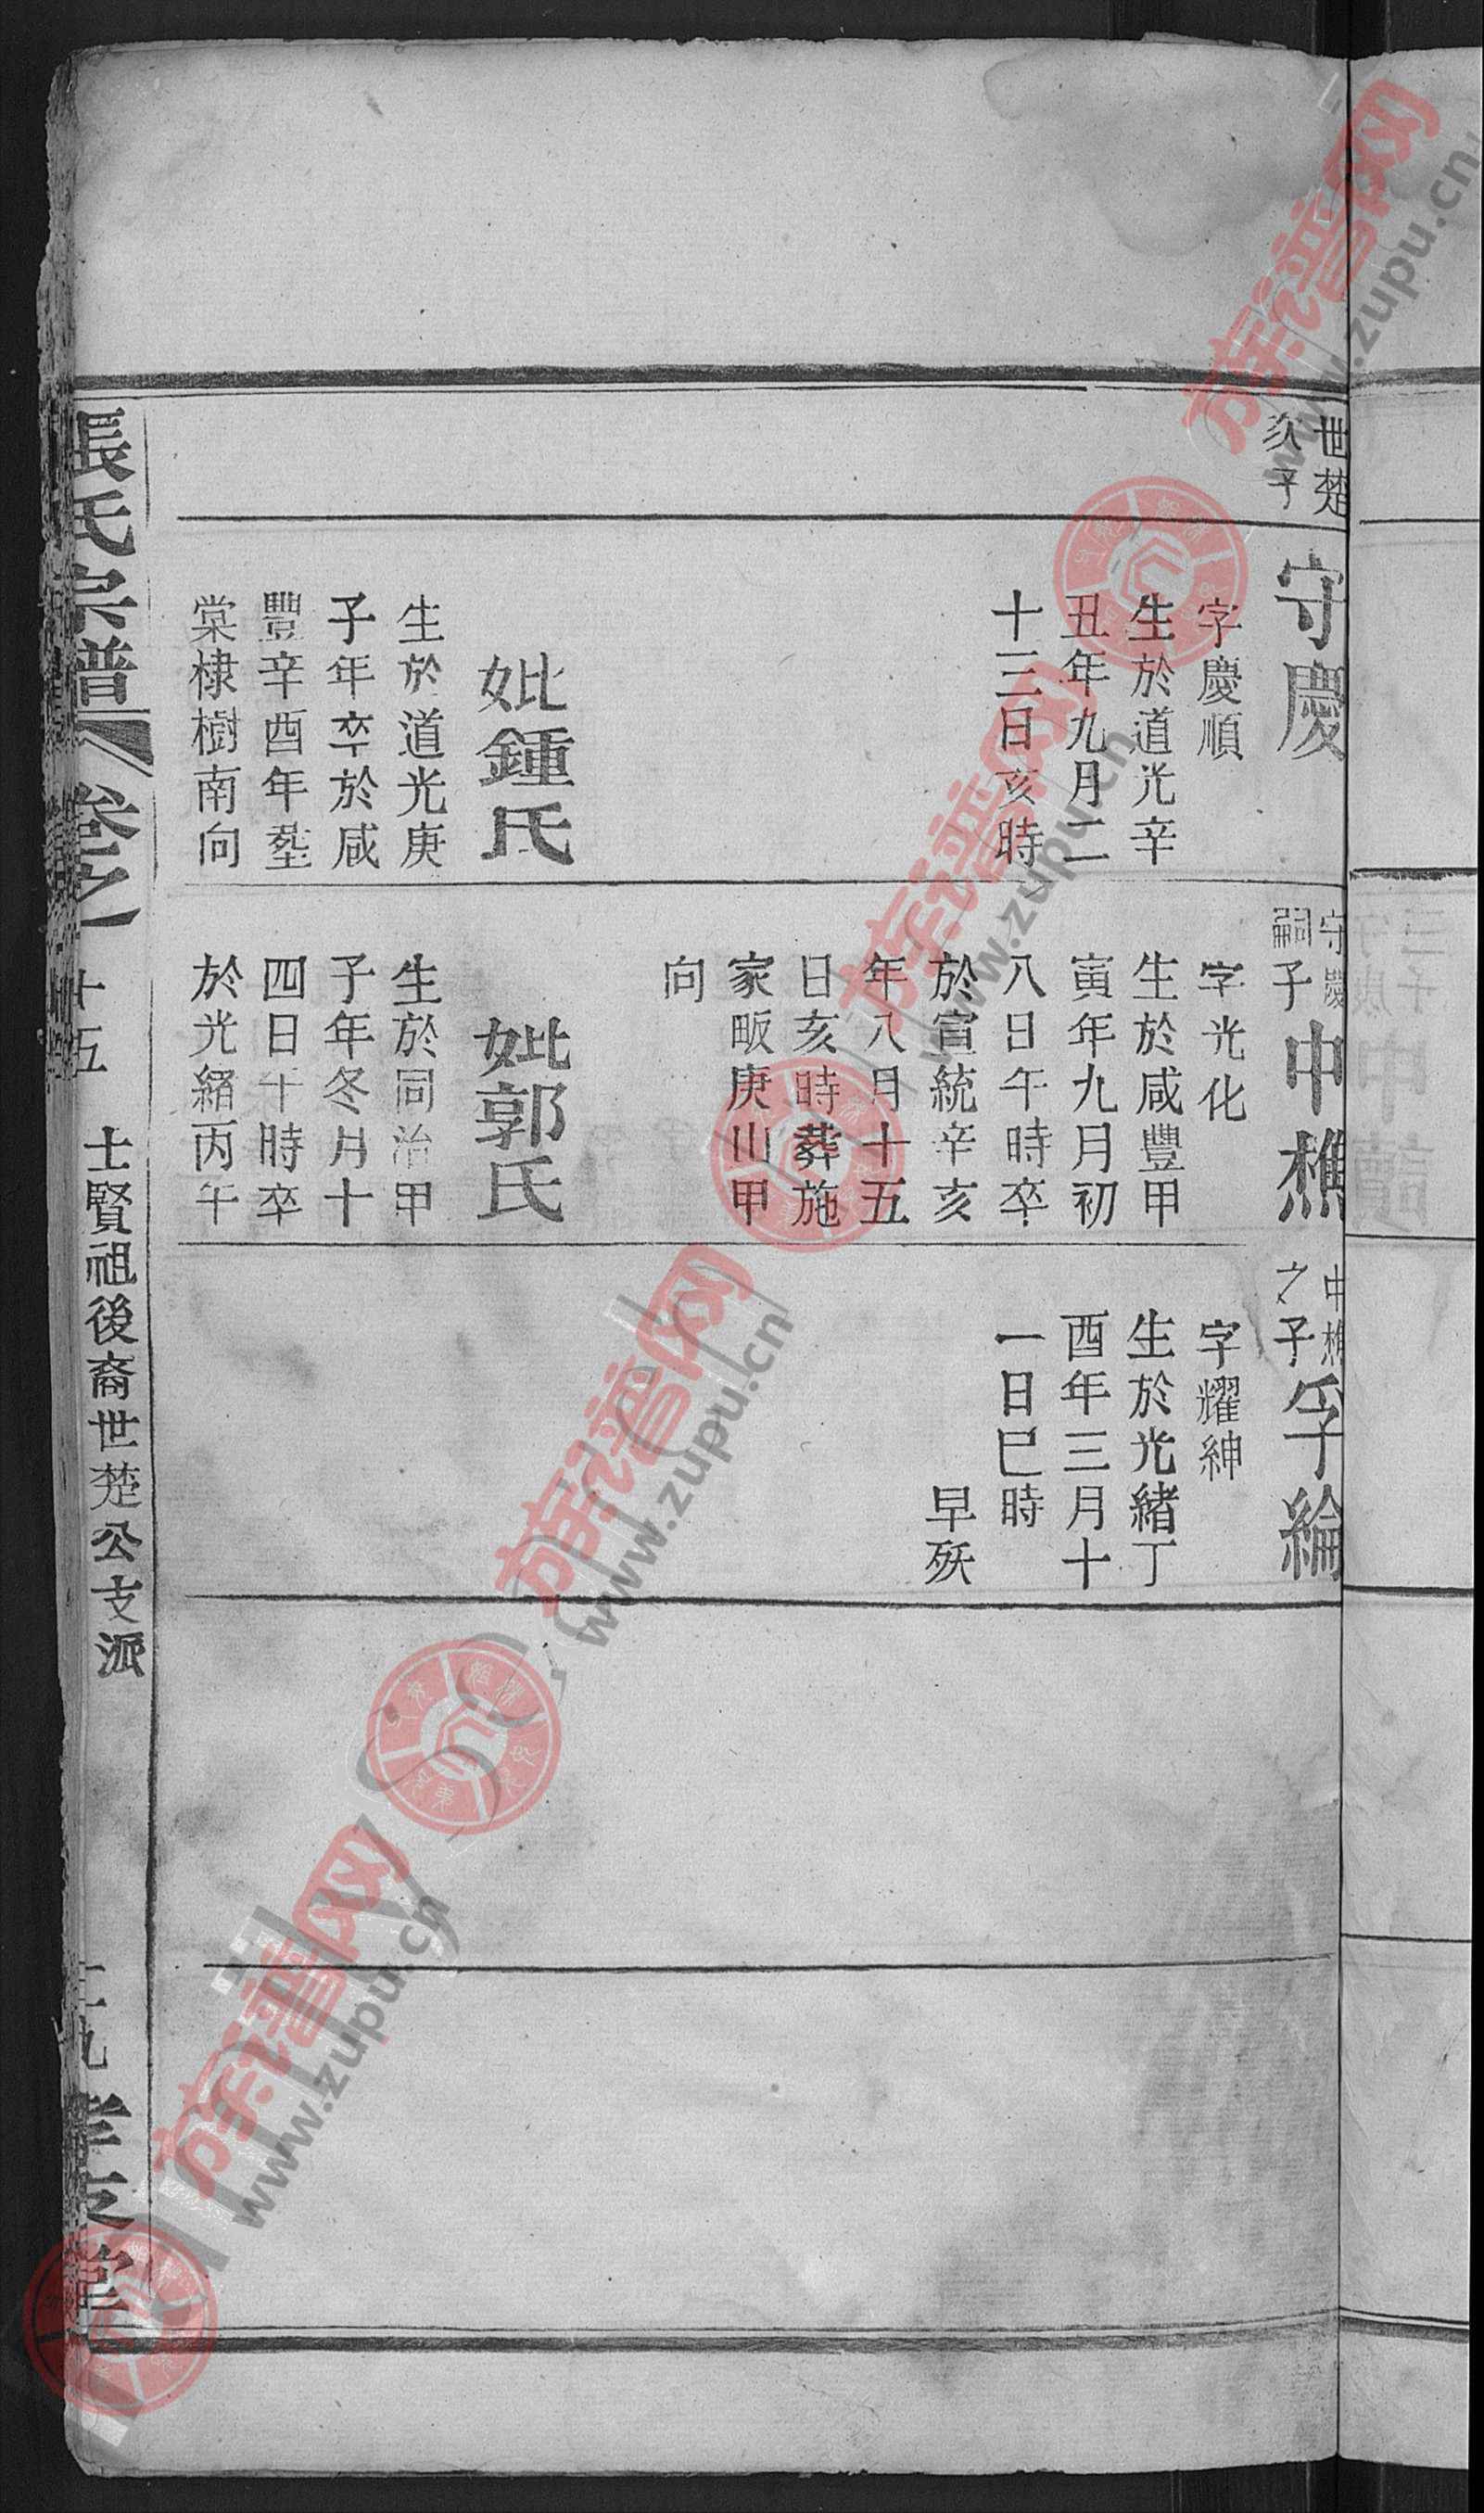 世楚
次子
守慶
字慶順
生於道光辛
丑年九月二
十三日亥時
妣鍾氏
生於道光庚
子年卒於咸
豐辛酉年塟
棠棣樹南向
守慶
嗣子
中樵
字光化
生於咸豐甲
寅年九月初
八日午時卒
於宣統辛亥
年八月十五
日亥時葬施
家畈庚山甲
向
妣郭氏
生於同治甲
子年冬月十
四日午時卒
於光緒丙午
中樵
之子
孚綸
字耀紳
生於光緒丁
酉年三月十
一日巳時
早殀
張氏宗譜
卷之
十五
士賢祖後裔世楚公支派
堂
族谱网
www.zupu.cn
族谱网
www.zupu.cn
族谱网
www.zupu.cn
族谱网
www.zupu.cn